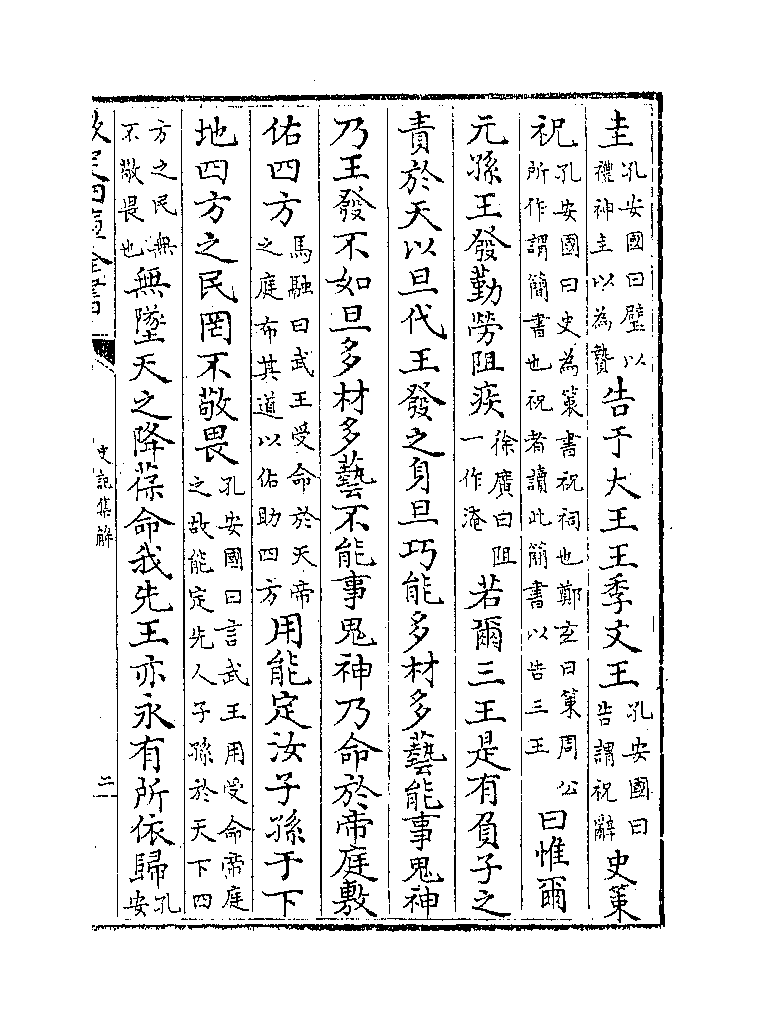 圭孔安國曰璧以禮神圭以為贄告于大王王季文王孔安國曰告謂祝辭史策
祝孔安國曰史為策書祝祠也鄭玄曰策周公所作謂簡書也祝者讀此簡書以告三王曰惟爾
元孫王發勤勞阻疾徐廣曰阻一作淹若爾三王是有負子之
責於天以旦代王發之身旦巧能多材多藝能事鬼神
乃王發不如旦多材多藝不能事鬼神乃命於帝庭敷
佑四方馬融曰武王受命於天帝之庭布其道以佑助四方用能定汝子孫于下
地四方之民罔不敬畏孔安國曰言武王用受命帝庭之故能定先人子孫於天下四
方之民無不敬畏也無墜天之降葆命我先王亦永有所依歸孔安
欽定四庫全書
史記集解
二